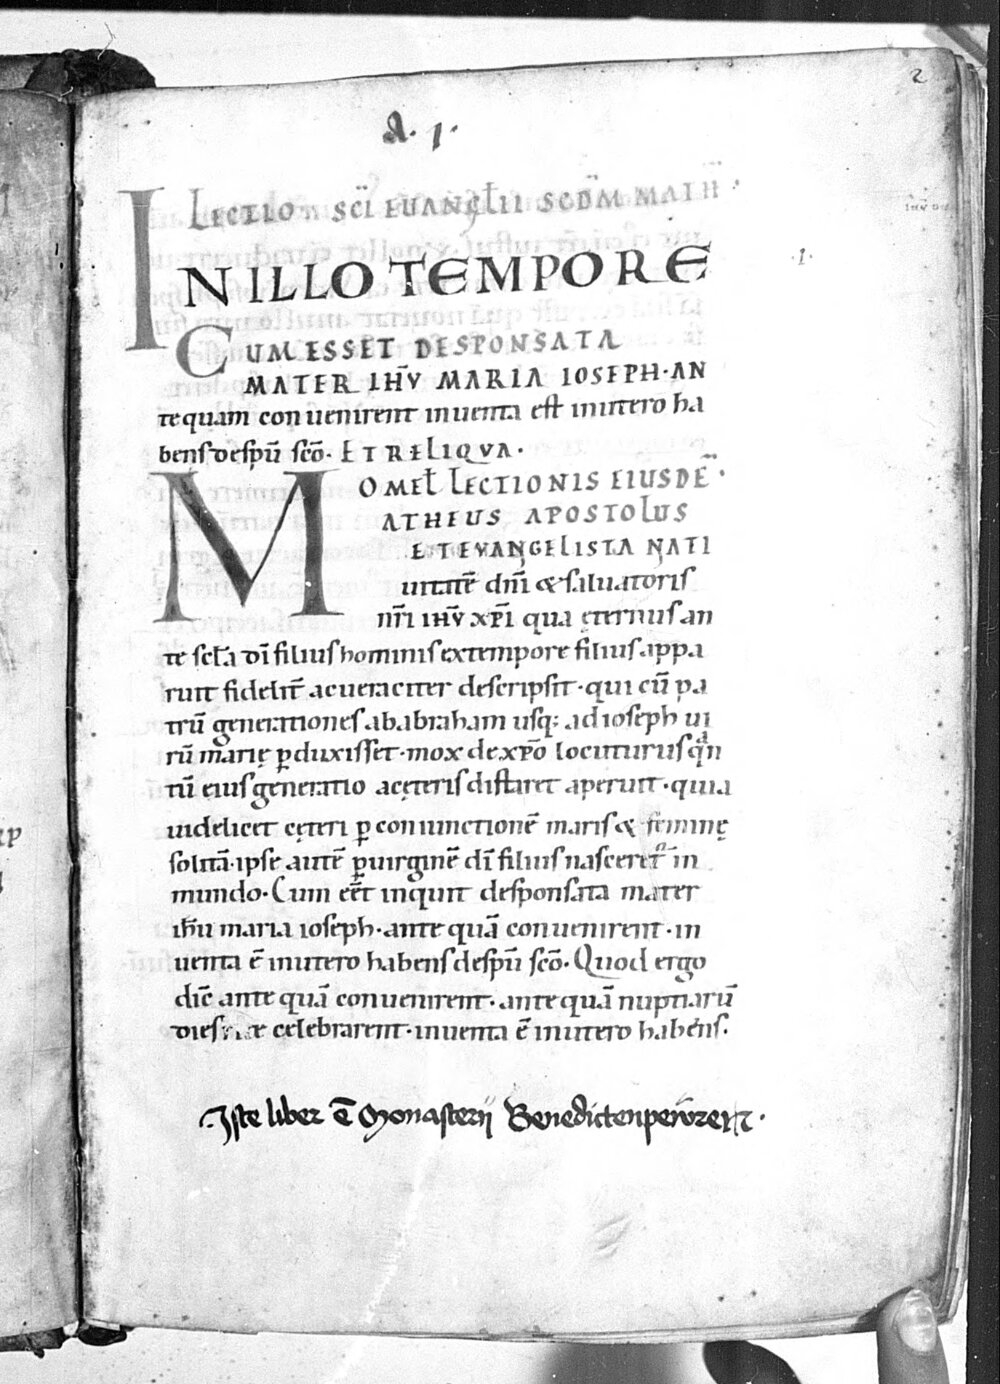 2
A. 1.
LECTIO SC̄I EUANGL̄II SCDM̄ MATH̄.
IN ILLO TEMPORE
.1.
CUM ESSET DESPONSATA
MATER IHV̄ MARIA IOSEPH·AN
tequam conuenirent inuenta est inutero ha
bens despū scō. ET RELIQVA.
OMEL̄ LECTIONIS EIUSDĒ.
MATHEUS APOSTOLUS
ET EVANGELISTA NATI
uitatē dnī & saluatoris
nr̄i IHV̄ XPĪ qua ęternus an
te scl̄a dī filius hominis extempore filius appa
ruit fidelit̄ acueraciter descripsit· qui cū pa
trū generationes ababraham usq; adioseph ui
rū marię ꝑduxisset· mox de xp̄o locuturus qͣn
tū eius generatio acęteris distaret aperuit· quia
uidelicet cęteri ꝑ coniunctionē maris & feminę
solitā· ipse autē ꝑuirginē dī filius nasceret᷑ in
mundo· Cum eēt inquit desponsata mater
ihū maria ioseph· ante quā conuenirent· in
uenta ē inutero habens despū scō· Quod ergo
dic̄ ante quā conuenirent· ante quā nuptiarū
dies celebrarent· inuenta ē inutero habens.
Iste liber ē Monasterij